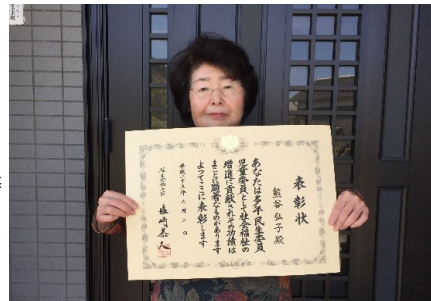 表彰状
熊谷 弘子 殿
あなたは多年民生委員
児童委員として社会福祉の
増進に貢献されその功績は
まことに顕著なものがあります
よってここに表彰します
平成二十九年六月二日
厚生労働大臣
塩崎恭久